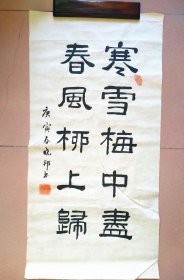 寒雪梅中盡
春風柳上歸
庚寅春曉